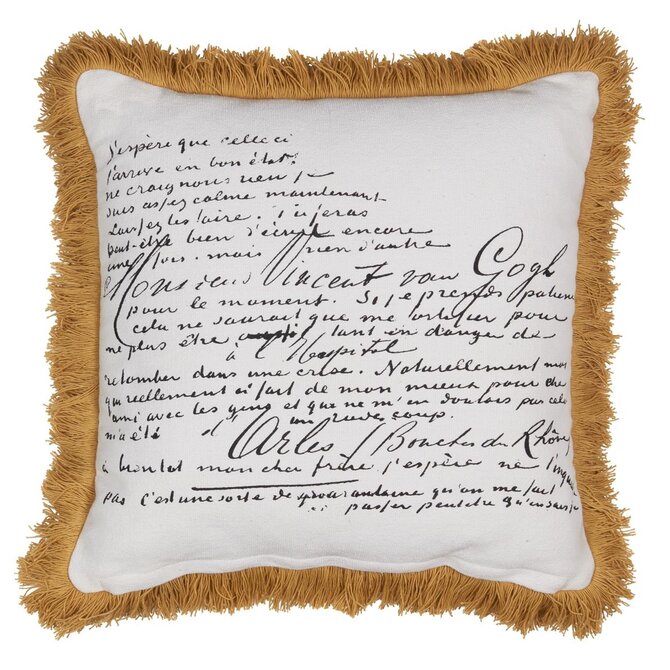 J'espère que celle ci
t'arrive en bon état.
ne craignons rien je
suis assez calme maintenant
Laissez les faire. Tu feras
peut-être bien d'écrire encore
une fois. mais rien d'autre
Monsieur Vincent van Gogh
pour le moment. Si je prends patience
cela ne saurait que me fortifier pour
ne plus être tant en danger de
à l'Hospital
retomber dans une crise. Naturellement moi
qui reellement ai fait de mon mieux pour être
ami avec les gens et que ne m'en doutais pas cela
m'a été un rude coup.
d'Arles (Bouches du Rhône)
à bientot mon cher frère j'espère ne
pas c'est une sorte de quarantaine qu'on me fait
passer peut être